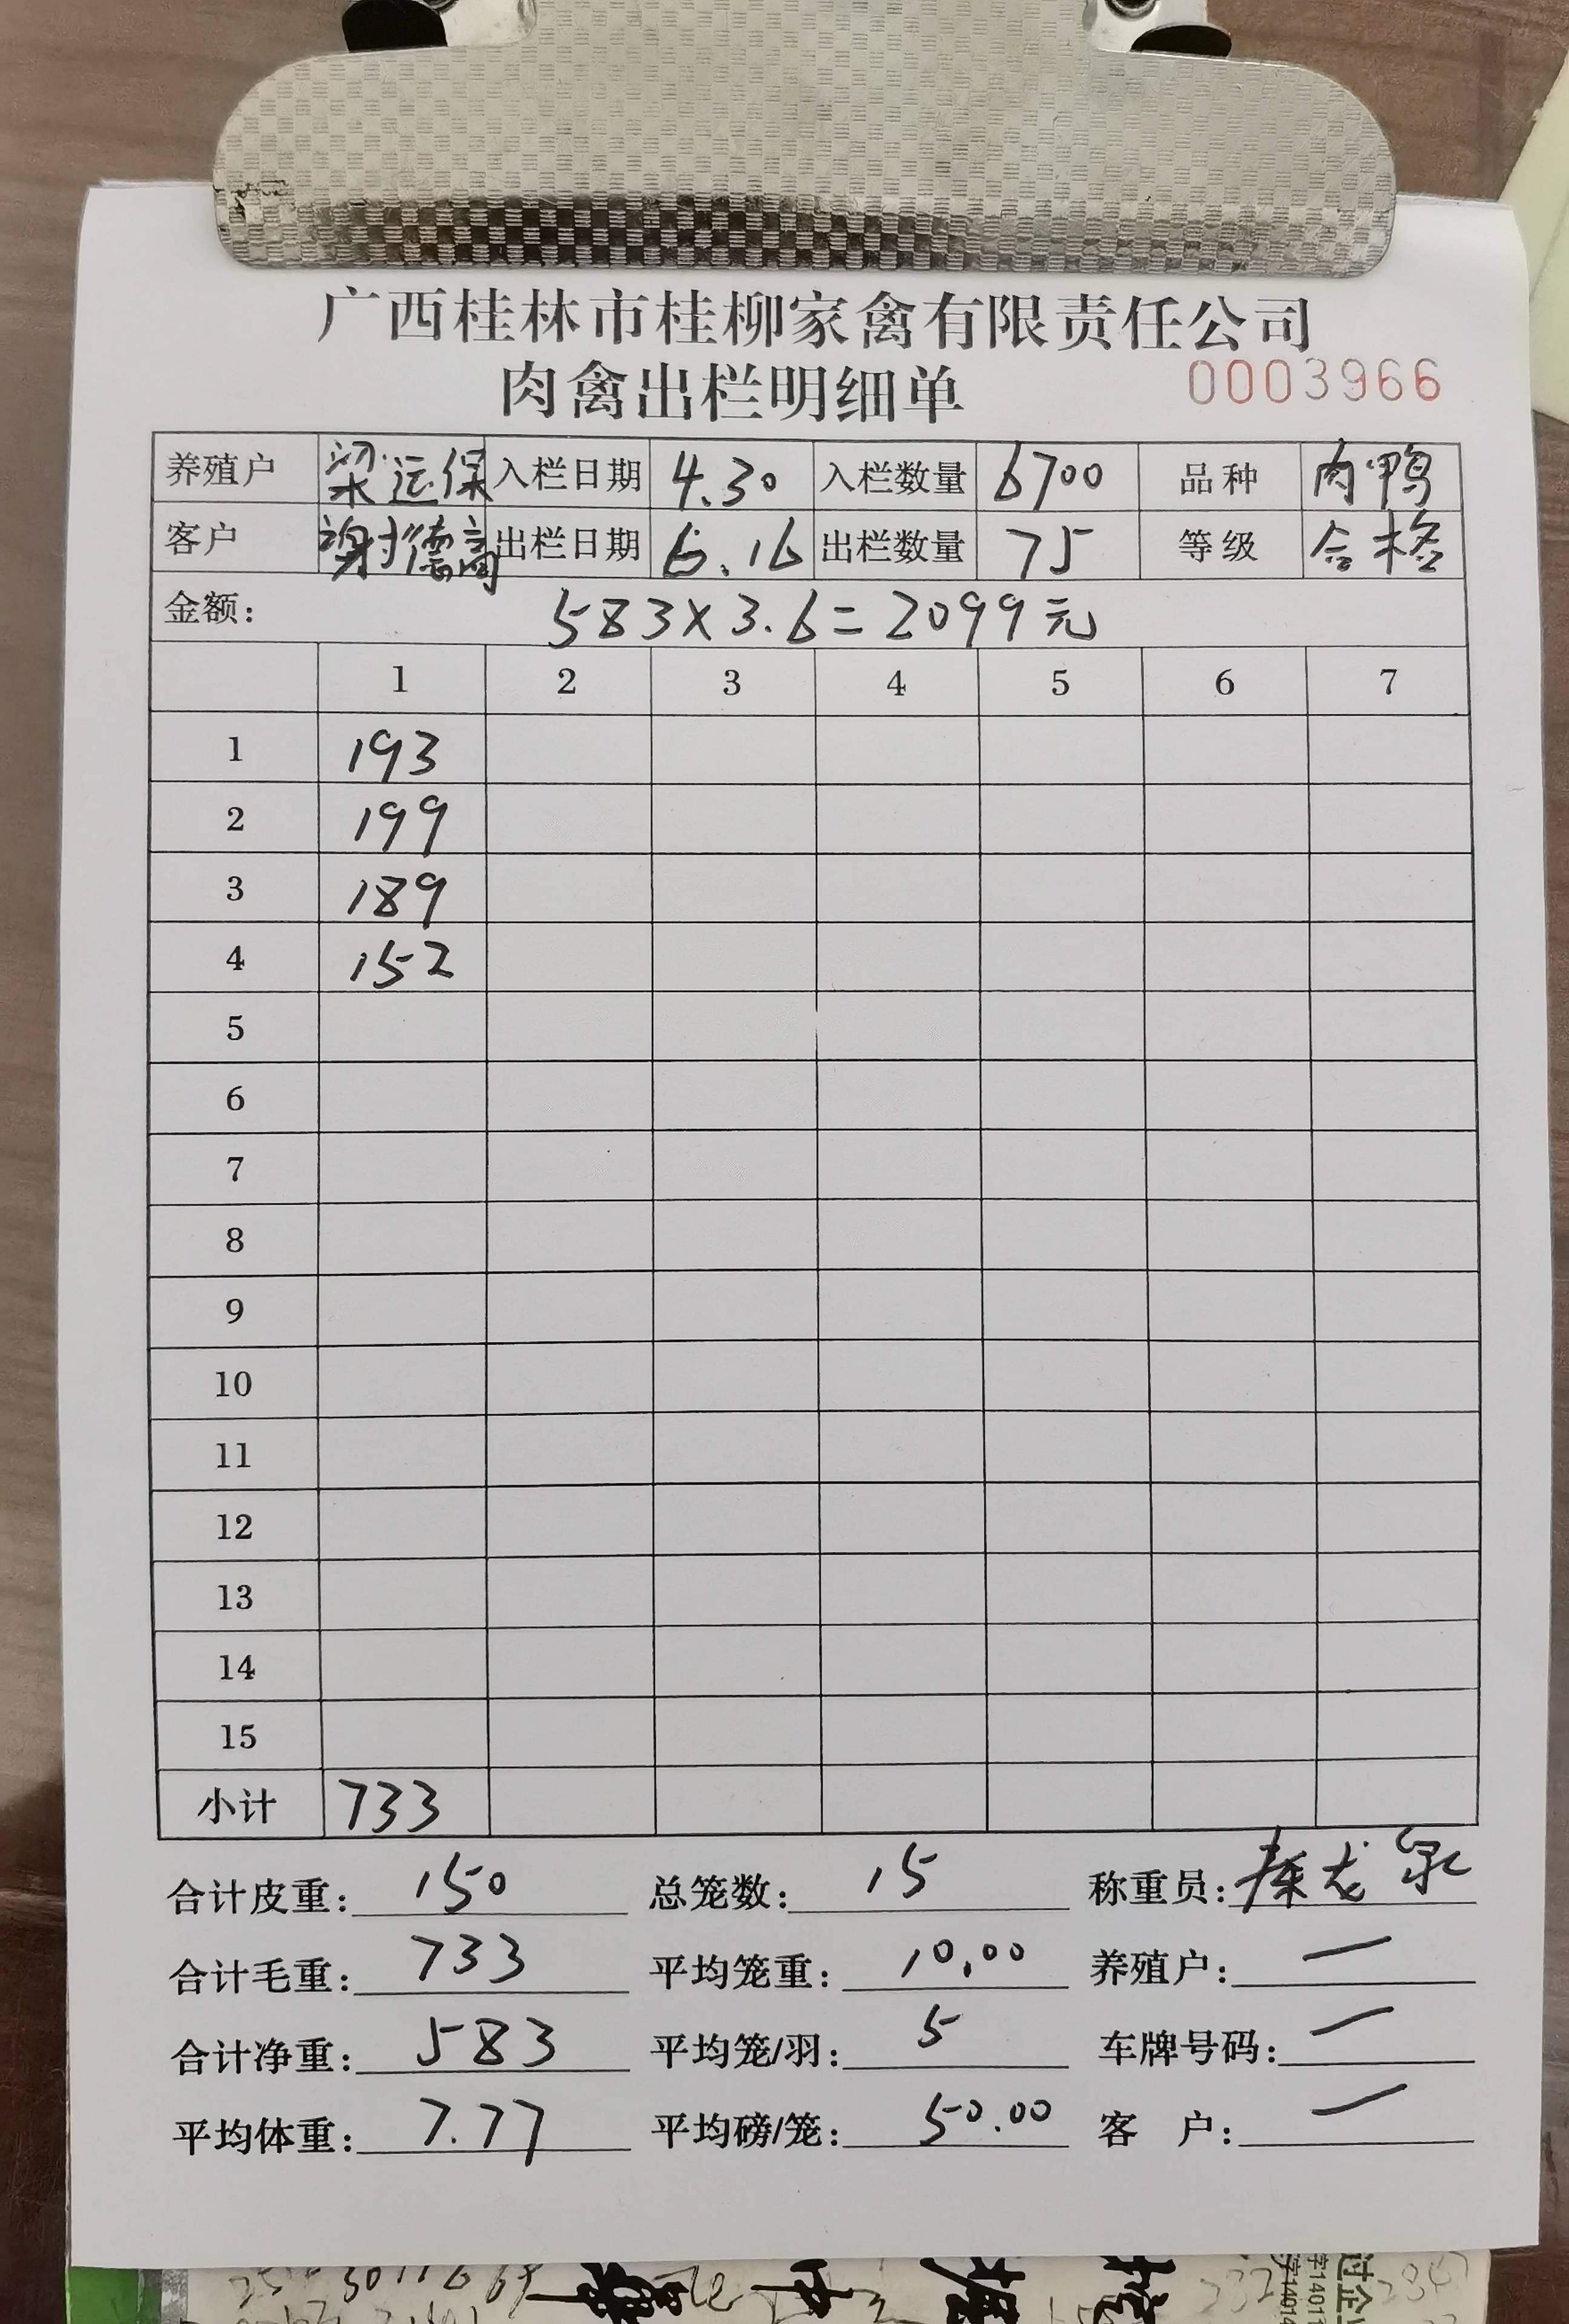 广西桂林市桂柳家禽有限责任公司
肉禽出栏明细单 0003966
养殖户 梁运保 入栏日期 4.30 入栏数量 6700 品种 肉鸭
客户 谢德高 出栏日期 6.16 出栏数量 75 等级 合格
金额: 583×3.6=2099元
1 2 3 4 5 6 7
1 193
2 199
3 189
4 152
5
6
7
8
9
10
11
12
13
14
15
小计 733
合计皮重: 150 总笼数: 15 称重员: 秦龙泉
合计毛重: 733 平均笼重: 10.00 养殖户: 一
合计净重: 583 平均笼/羽: 5 车牌号码: 一
平均体重: 7.77 平均磅/笼: 50.00 客 户: 一